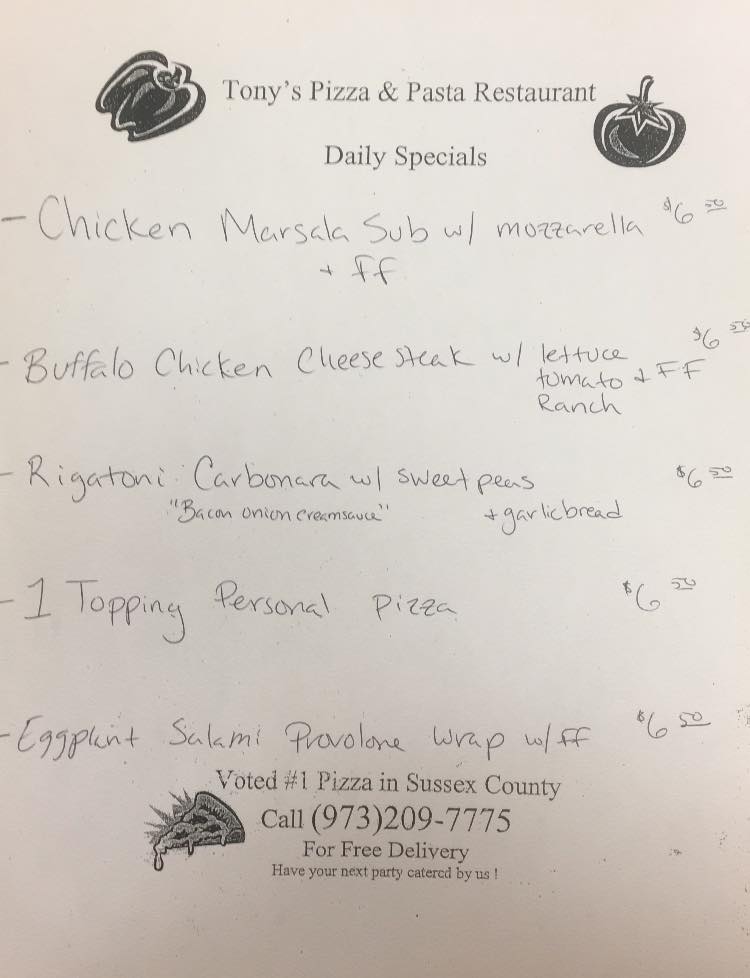 Tony's Pizza & Pasta Restaurant
Daily Specials
- Chicken Marsala Sub w/ mozzarella $6 50
+ ff
- Buffalo Chicken Cheesesteak w/ lettuce $6 50
tomato + FF
Ranch
- Rigatoni Carbonara w/ sweet peas $6 50
"Bacon onion creamsauce" + garlic bread
- 1 Topping Personal Pizza $6 50
- Eggplant Salami Provolone Wrap w/ ff $6 50
Voted #1 Pizza in Sussex County
Call (973)209-7775
For Free Delivery
Have your next party catered by us !